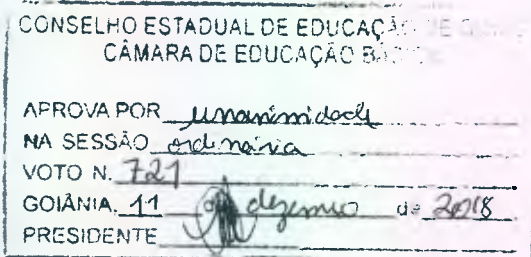 CONSELHO ESTADUAL DE EDUCAÇÃO DE
CÂMARA DE EDUCAÇÃO
APROVA POR unanimidade
NA SESSÃO ordinária
VOTO N. 721
GOIÂNIA, 11 de dezembro de 2018
PRESIDENTE